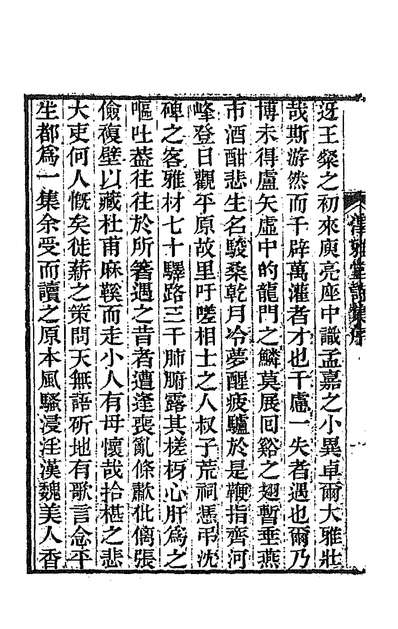 澤雅堂詩集序
迓王粲之初來庾亮座中識孟嘉之小異卓爾大雅壯
哉斯游然而千辟萬灌者才也千慮一失者遇也爾乃
博未得盧矢虛中的龍門之鱗莫展回谿之翅暫垂燕
市酒酣悲生名駿桑乾月冷夢醒疲驢於是鞭指齊河
峰登日觀平原故里吁嗟相士之人叔子荒祠憑弔沈
碑之客雅材七十驛路三千肺腑露其槎枒心肝爲之
嘔吐葢往往於所箸遇之昔者遭逢喪亂條歗仳㒧張
儉複壁以藏杜甫麻鞵而走小人有母懷哉拾椹之悲
大吏何人慨矣徙薪之策問天無語斫地有歌言念平
生都爲一集余受而讀之原本風騷浸淫漢魏美人香